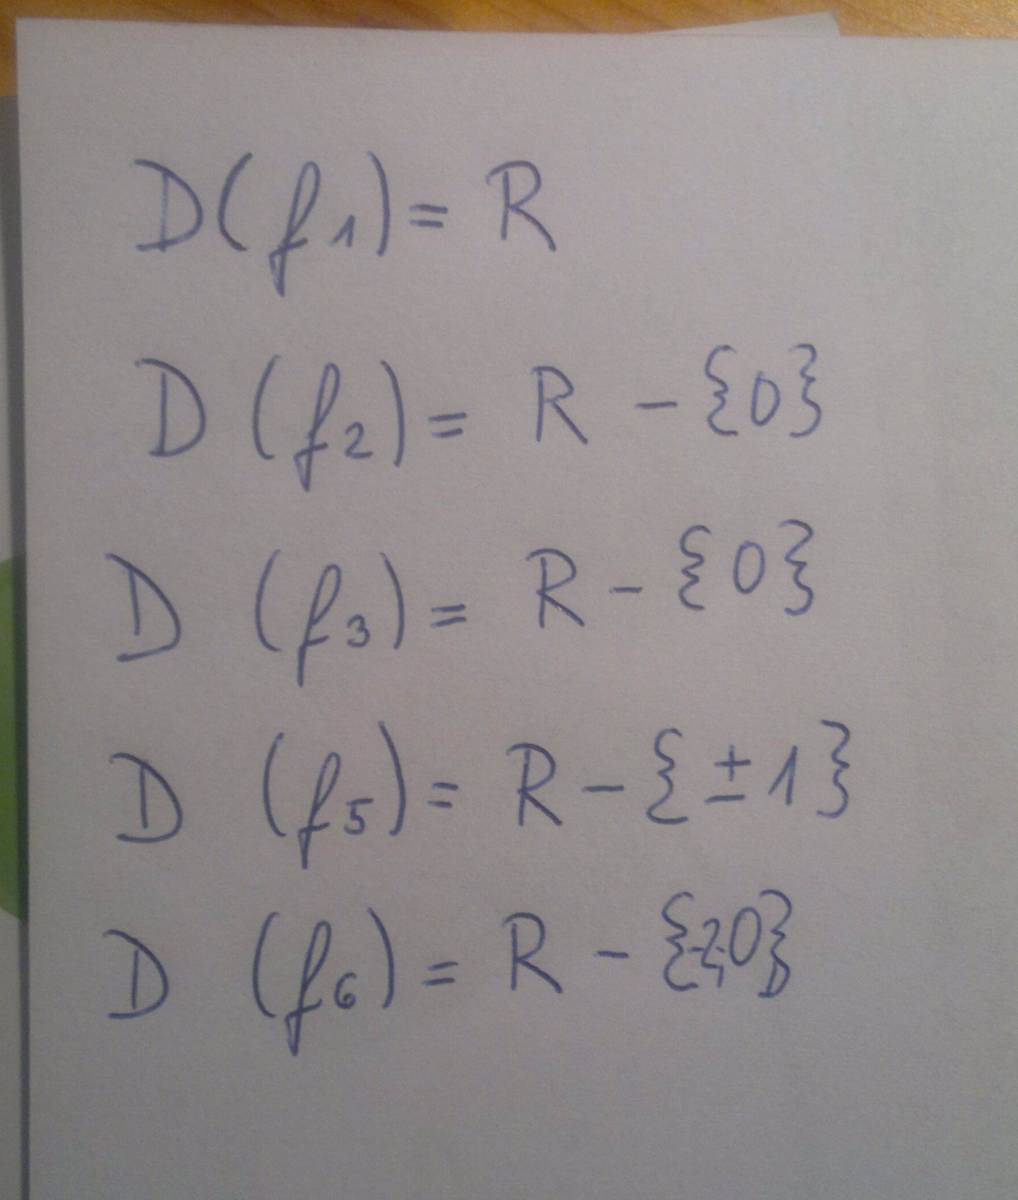 D(f₁) = R
D (f₂) = R - {0}
D (f₃) = R - {0}
D (f₅) = R - {±1}
D (f₆) = R - {-2;0}